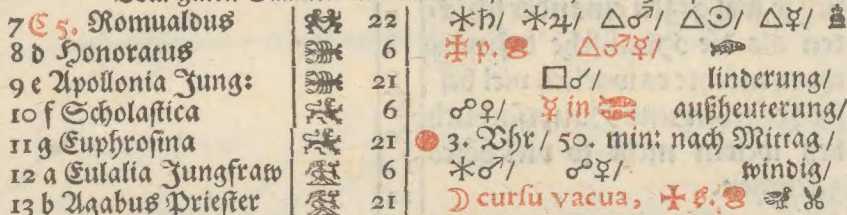 7 C 5. Romualdus 22 ⚹♄/ ⚹♃/ △♂/ △☉/ △☿/
8 d Honoratus 6 p. △♂☿/
9 e Apollonia Jung: 21 □☌/ linderung/
10 f Scholastica 6 ☍♀/ ☿ in außheuterung/
11 g Euphrosina 21 3. Vhr/ 50. min: nach Mittag/
12 a Eulalia Jungfraw 6 ⚹♂/ ☍☿/ windig/
13 b Agabus Priester 21 ☽ cursu vacua,